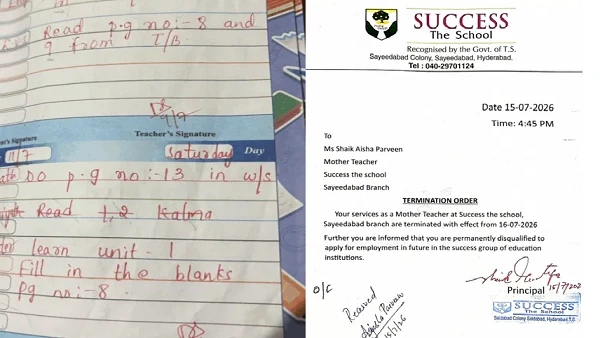 Read p.g no:-8 and
9 from T/B.
9/7
Teacher's Signature
11/7
Saturday Day
Do p.g no:-13 in w/s
Read 1,2 Kalma
learn unit-1
Fill in the blanks
Pg no:-8.
SUCCESS
The School
Recognised by the Govt. of T.S.
Sayeedabad Colony, Sayeedabad, Hyderabad.
Tel : 040-29701124
Date 15-07-2026
Time: 4:45 PM
To
Ms Shaik Aisha Parveen
Mother Teacher
Success the school
Sayeedabad Branch
TERMINATION ORDER
Your services as a Mother Teacher at Success the school,
Sayeedabad branch are terminated with effect from 16-07-2026
Further you are informed that you are permanently disqualified to
apply for employment in future in the success group of education
institutions.
O/C
Received
15/7/26
Principal
SUCCESS
Saidabad Colony Saidabad, Hyderabad T.S